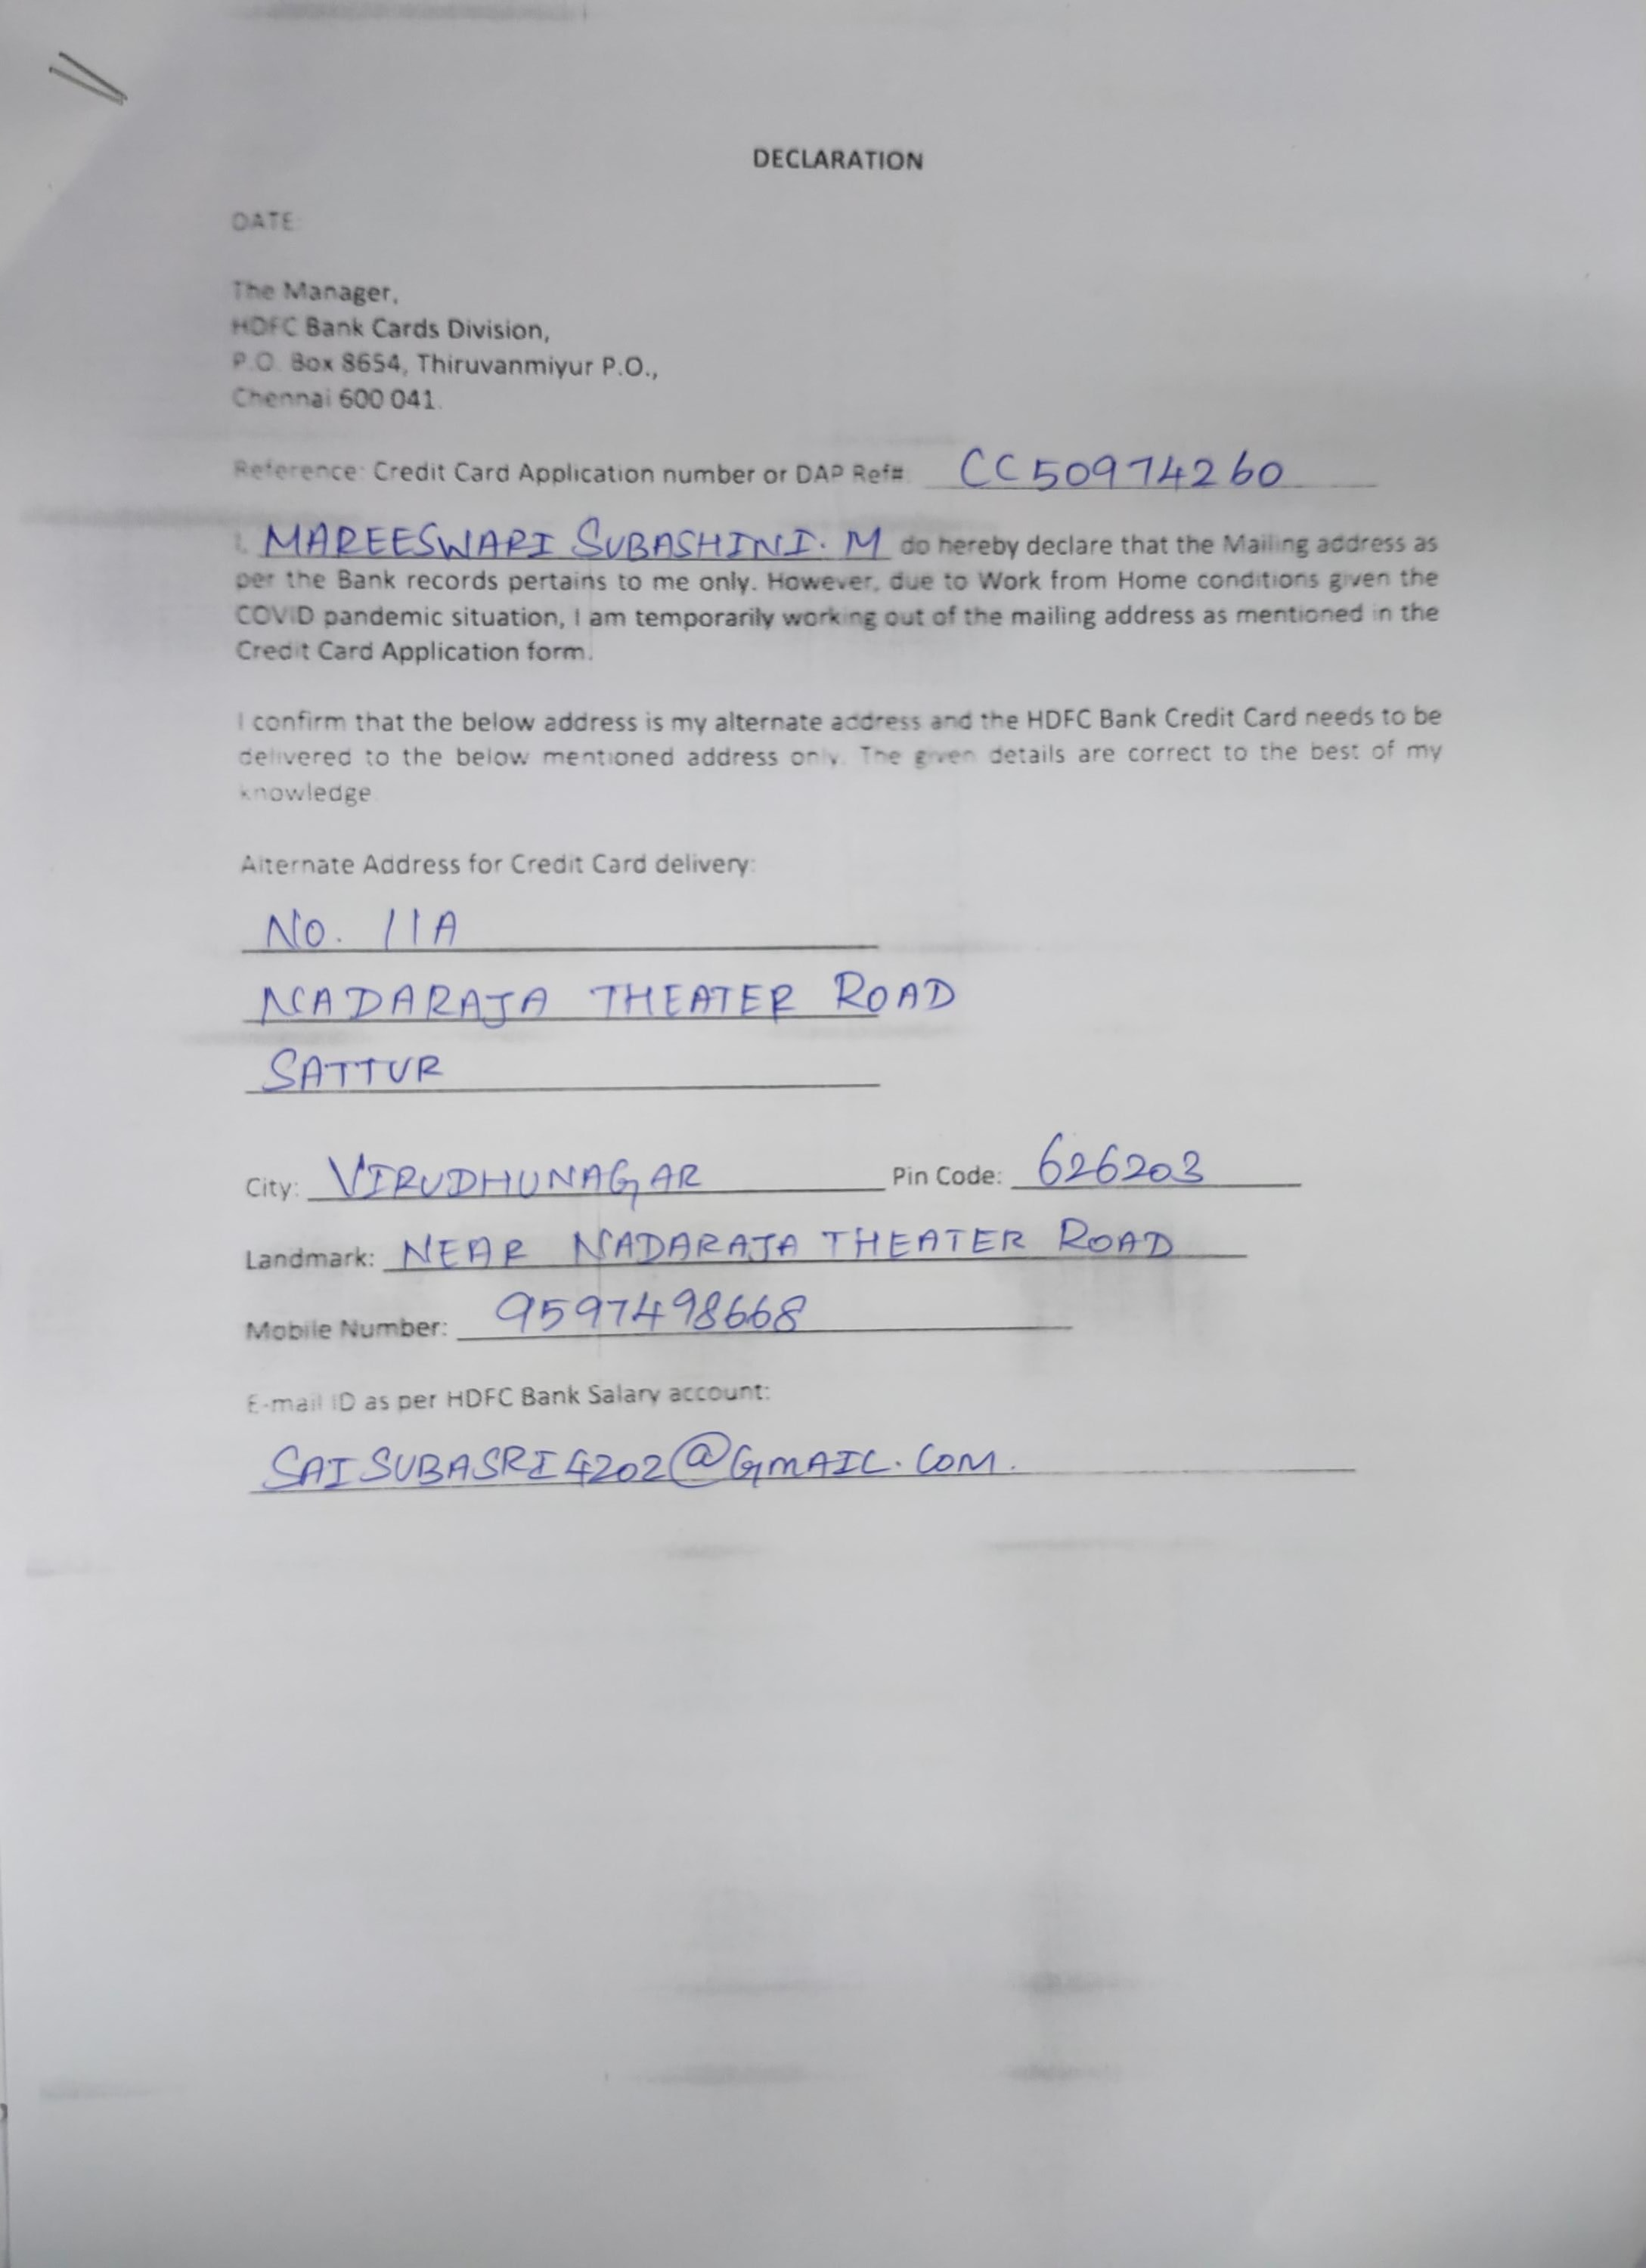 DECLARATION
DATE:
The Manager,
HDFC Bank Cards Division,
P.O. Box 8654, Thiruvanmiyur P.O.,
Chennai 600 041.
Reference: Credit Card Application number or DAP Ref#. CC50974260
I, MAREESWARI SUBASHINI. M do hereby declare that the Mailing address as
per the Bank records pertains to me only. However, due to Work from Home conditions given the
COVID pandemic situation, I am temporarily working out of the mailing address as mentioned in the
Credit Card Application form.
I confirm that the below address is my alternate address and the HDFC Bank Credit Card needs to be
delivered to the below mentioned address only. The given details are correct to the best of my
knowledge.
Alternate Address for Credit Card delivery:
NO. 11A
NADARAJA THEATER ROAD
SATTUR
City: VIRUDHUNAGAR Pin Code: 626203
Landmark: NEAR NADARAJA THEATER ROAD
Mobile Number: 9597498668
E-mail ID as per HDFC Bank Salary account:
SAISUBASRI4202@GMAIL.COM.